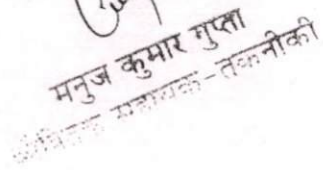 मनुज कुमार गुप्ता
सहायक-तकनीकी